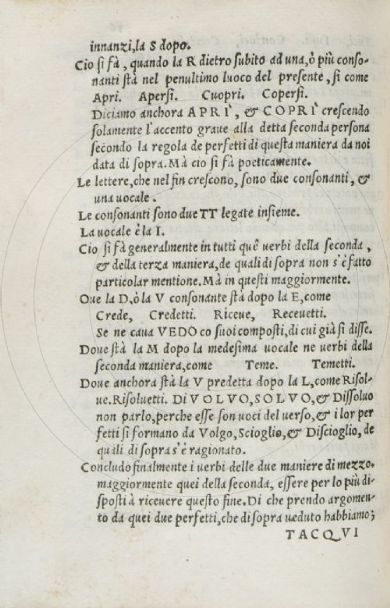 innanzi, la S dopo.
Cio si fà, quando la R dietro subito ad una, ò più conso-
nanti stà nel penultimo luoco del presente, si come
Apri. Apersi. Cuopri. Copersi.
Diciamo anchora APRÌ, & COPRÌ crescendo
solamente l'accento graue alla detta seconda persona
secondo la regola de perfetti di questa maniera da noi
data di sopra. Mà cio si fà poeticamente.
Le lettere, che nel fin crescono, sono due consonanti, &
una uocale.
Le consonanti sono due TT legate insieme.
La uocale è la I.
Cio si fà generalmente in tutti quê uerbi della seconda,
& della terza maniera, de quali di sopra non s'è fatto
particolar mentione. Mà in questi maggiormente.
Oue la D, ò la V consonante stà dopo la E, come
Crede, Credetti. Riceue, Receuetti.
Se ne caua VEDO co suoi composti, di cui già si disse.
Doue stà la M dopo la medesima uocale ne uerbi della
seconda maniera, come Teme. Temetti.
Doue anchora stà la V predetta dopo la L, come Risol-
ue. Risoluetti. DIVOLVO, SOLVO, & Dissoluo
non parlo, perche esse son uoci del uerso, & i lor per
fetti si formano da Volgo, Scioglio, & Discioglio, de
quali di sopra s'è ragionato.
Concludo finalmente i uerbi delle due maniere di mezzo,
maggiormente quei della seconda, essere per lo più di-
sposti à riceuere questo fine. Di che prendo argomen-
to da quei due perfetti, che di sopra ueduto habbiamo;
TACQVI